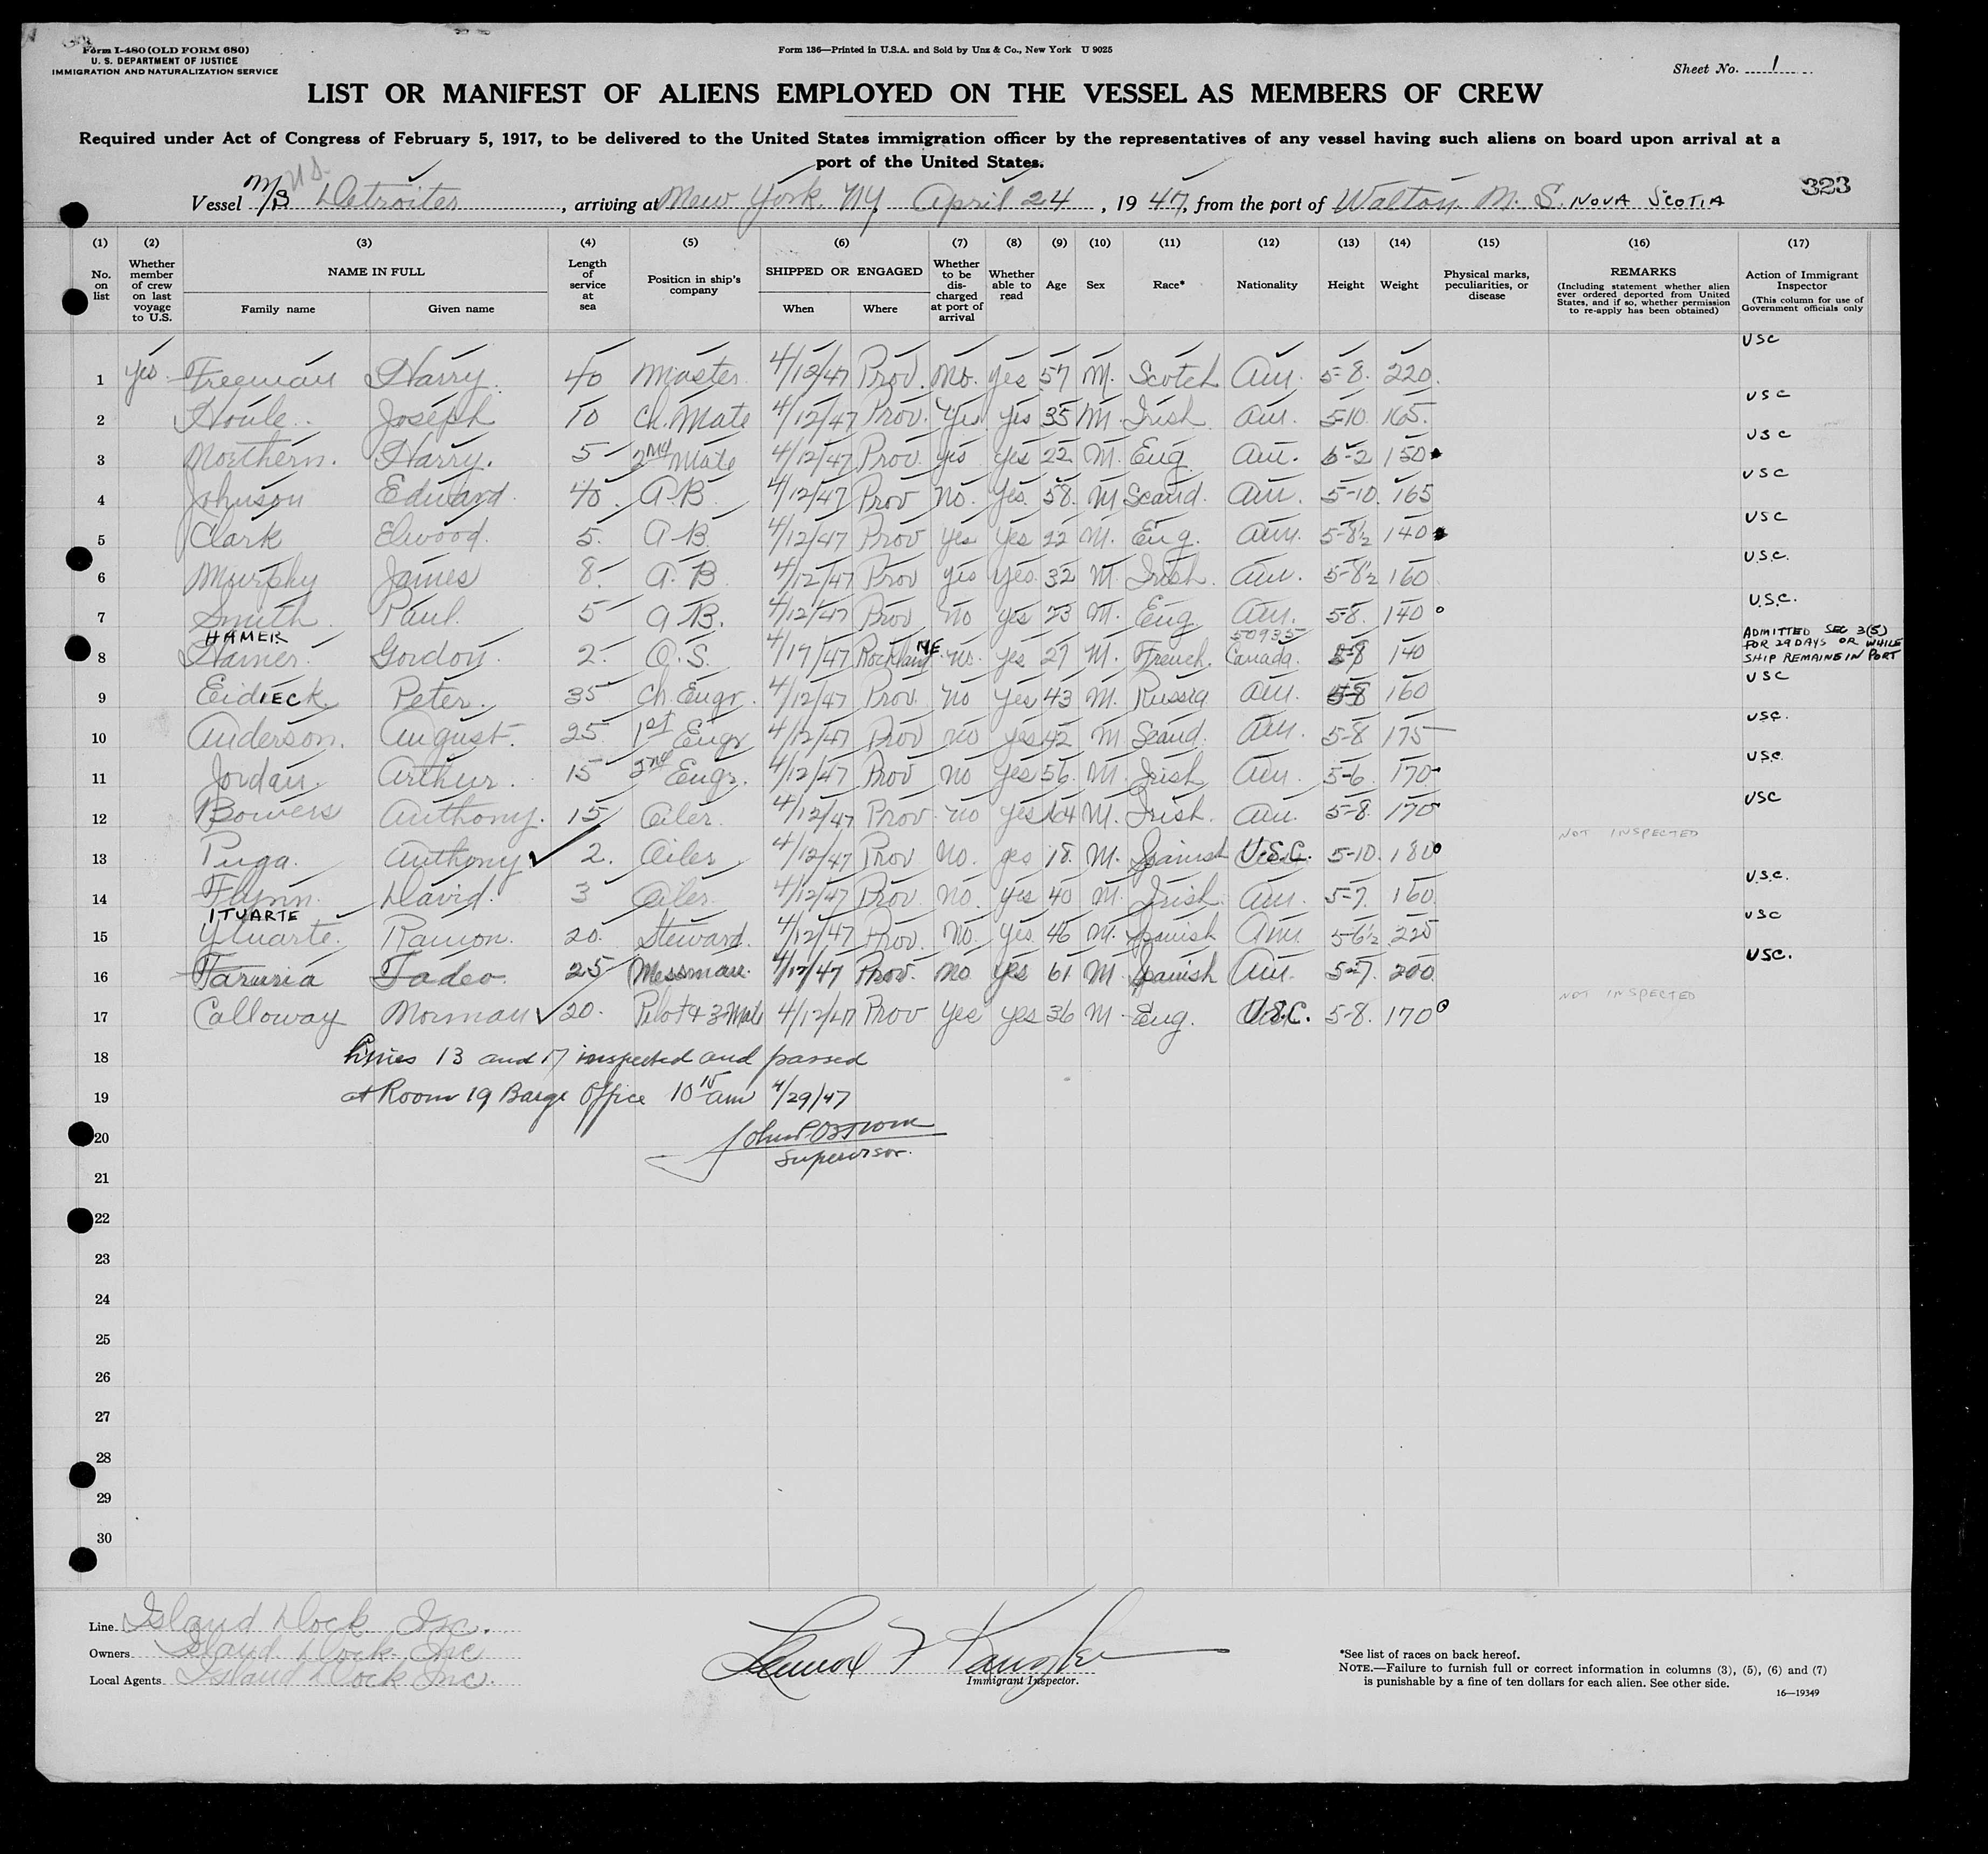 Form I-480 (OLD FORM 680)
U. S. DEPARTMENT OF JUSTICE
IMMIGRATION AND NATURALIZATION SERVICE
Form 136—Printed in U.S.A. and Sold by Unz & Co., New York U 9025
Sheet No. 1
LIST OR MANIFEST OF ALIENS EMPLOYED ON THE VESSEL AS MEMBERS OF CREW
Required under Act of Congress of February 5, 1917, to be delivered to the United States immigration officer by the representatives of any vessel having such aliens on board upon arrival at a
port of the United States.
U.S.
Vessel M/S Detroiter, arriving at New York NY, April 24, 1947, from the port of Walton N. S. NOVA SCOTIA
323
(1) (2) (3) (4) (5) (6) (7) (8) (9) (10) (11) (12) (13) (14) (15) (16) (17)
No. on list
Whether member of crew on last voyage to U.S.
NAME IN FULL
Family name Given name
Length of service at sea
Position in ship's company
SHIPPED OR ENGAGED
When Where
Whether to be discharged at port of arrival
Whether able to read
Age
Sex
Race*
Nationality
Height
Weight
Physical marks, peculiarities, or disease
REMARKS
(Including statement whether alien ever ordered deported from United States, and if so, whether permission to re-apply has been obtained)
Action of Immigrant Inspector
(This column for use of Government officials only
1 yes Freeman Harry. 40 Master 4/12/47 Prov. No. yes 57 M. Scotch Am. 5-8. 220. USC
2 Houle. Joseph 10 Ch. Mate 4/12/47 Prov. Yes yes 35 M. Irish Am. 5-10. 165. USC
3 Northern. Harry. 5 2nd Mate 4/12/47 Prov yes yes 22 M. Eng. Am. 6-2 150 USC
4 Johnson Edward. 40. A.B. 4/12/47 Prov no. yes. 58. M Scand. Am. 5-10. 165 USC
5 Clark Elwood. 5. A-B. 4/12/47 Prov yes yes 22 M. Eng. Am. 5-8½ 140 USC
6 Murphy James 8. A.B 4/12/47 Prov yes yes. 32 M. Irish. Am. 5-8½ 160. U.S.C.
7 Smith Paul. 5 A.B. 4/12/47 Prov no yes 23 M. Eng Am. 5-8. 140 U.S.C.
HAMER 50935
8 Hamer. Gordon. 2. O.S. 4/17/47 Rockland ME no. yes 27 M. French. Canada. 5-8 140 ADMITTED SEC 3(5) FOR 29 DAYS OR WHILE SHIP REMAINS IN PORT
9 EidIECK. Peter. 35 Ch. Engr. 4/12/47 Prov. no yes 43 M. Russia Am. 5-8 160 USC
10 Anderson. August. 25 1st Engr 4/12/47 Prov no yes 42 M Scand. Am. 5-8 175 USC.
11 Jordan. Arthur. 15 2nd Engr. 4/12/47 Prov no yes 56. M. Irish Am. 5-6. 170 U.S.C.
12 Bowers Anthony. 15 Oiler. 4/12/47 Prov. no yes 64 M. Irish. Am. 5-8. 170 USC
13 Puga. Anthony 2. Oiler 4/12/47 Prov No. yes 18. M. Spanish U.S.C. 5-10. 180 NOT INSPECTED
14 Flynn. David. 3 Oiler. 4/12/47 Prov. No. yes 40 M. Irish. Am. 5-7. 160. U.S.C.
ITUARTE
15 Ytuarte. Ramon. 20. Steward. 4/12/47 Prov. No. yes 46 M. Spanish Am. 5-6½ 225 USC
16 Faruria Tadeo. 25 Messman. 4/12/47 Prov. no yes 61 M Spanish Am. 5-7. 200. USC.
17 Calloway Norman 20. Pilot & 3-Mate 4/12/47 Prov Yes yes 36 M. Eng. U.S.C. 5-8. 170 NOT INSPECTED
18 Lines 13 and 17 inspected and passed
19 at Room 19 Barge Office 10 15 am 4/29/47
20 John P. Ostrom
Supervisor.
21
22
23
24
25
26
27
28
29
30
Line Island Dock Inc.
Owners Island Dock Inc
Local Agents Island Dock Inc.
Immigrant Inspector.
*See list of races on back hereof.
NOTE.—Failure to furnish full or correct information in columns (3), (5), (6) and (7)
is punishable by a fine of ten dollars for each alien. See other side.
16—19349